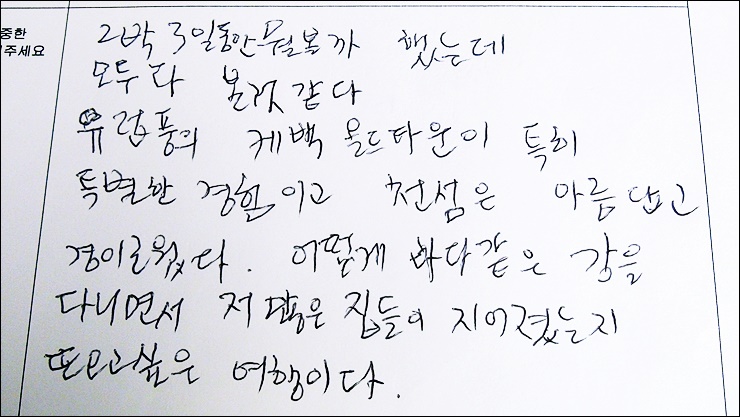 중한
주세요
2박 3일동안 뭘볼까 했는데
모두 다 본것 같다
유럽풍의 퀘백 올드타운이 특히
특별한 경험이고 천섬은 아름답고
경이로웠다. 어떻게 바다같은 강을
다니면서 저 많은 집들이 지어졌는지
또오고싶은 여행이다.